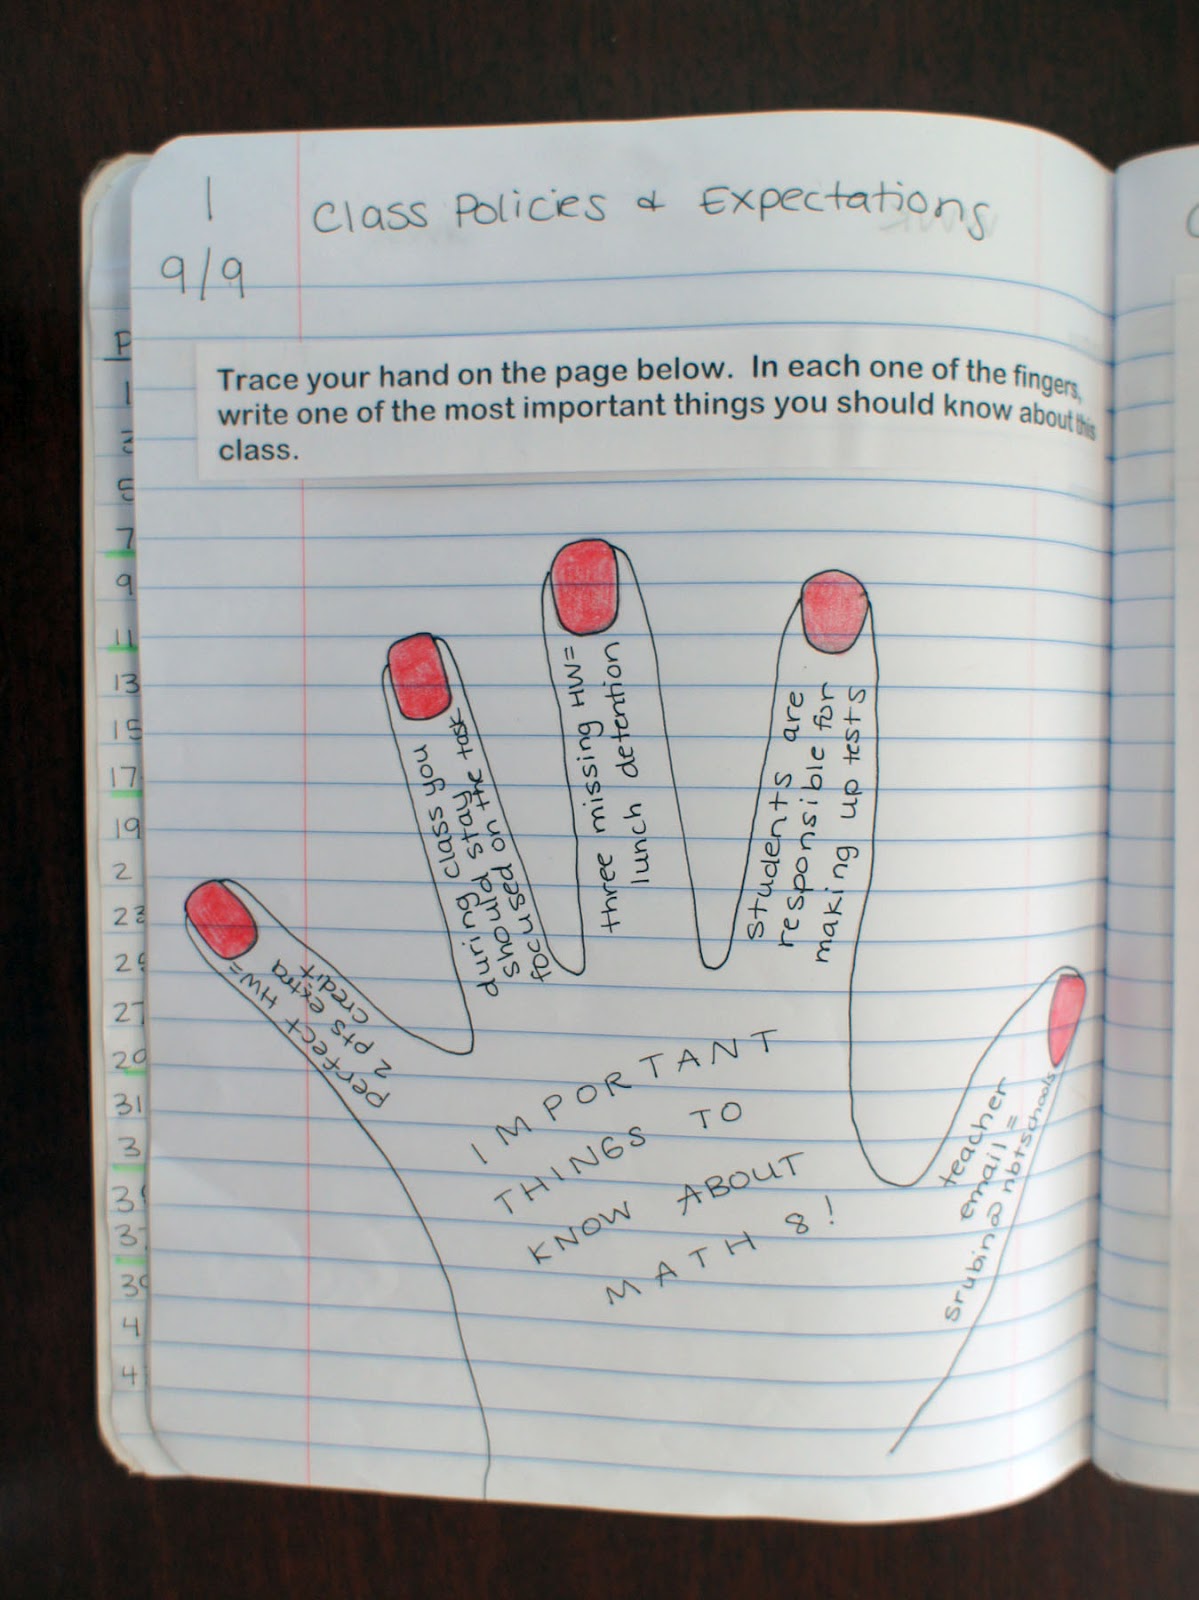 1
9/9
Class Policies & Expectations
Trace your hand on the page below. In each one of the fingers,
write one of the most important things you should know about this
class.
perfect HW=
2 pts extra
credit
during class you
should stay
focused on the task
three missing HW=
lunch detention
students are
responsible for
making up tests
teacher
email =
srubin@nbtschools
IMPORTANT
THINGS TO
KNOW ABOUT
MATH 8!
P
1
3
5
7
9
11
13
15
17
19
2
23
25
27
29
31
3
3
37
39
4
4